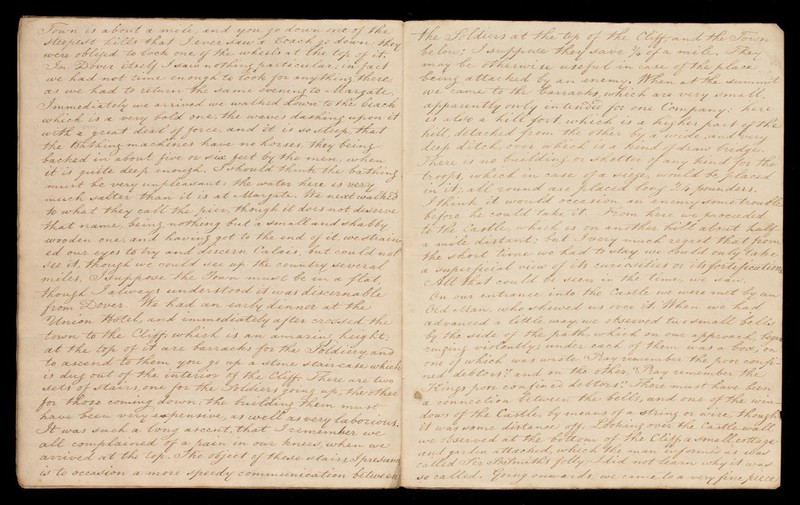 Town is about a mile, and you go down one of the
steepest hills that I ever saw a Coach go down; they
were obliged to lock one of the wheels at the top of it.
In Dover itself I saw nothing particular, in fact
we had not time enough to look for any thing there
as we had to return the same evening to Margate.
Immediately we arrived we walked down to the beach
which is a very bold one, the waves dashing upon it
with a great deal of force, and it is so steep, that
the Bathing machines have no horses, they being
backed in about five or six feet by the men, when
it is quite deep enough. I should think the bathing
must be very unpleasant: the water here is very
much salter than it is at Margate. We next walked
to what they call the pier, though it does not deserve
that name, being nothing but a small and shabby
wooden one, and having got to the end of it, we strain-
ed our eyes to try and discern Calais, but could not
see it, though we could see up the country several
miles. I suppose the Town must be in a flat,
though I always understood it was discernable
from Dover. We had an early dinner at the
Union Hotel, and immediately after crossed the
town to the Cliff, which is an amazing height;
at the top of it are barracks for the Soldiery, and
to ascend to them you go up a stone stair-case which
is dug out of the interior of the Cliff. There are two
sets of stairs, one for the Soldiers going up, the other
for those coming down; the building them must
have been very expensive, as well as very laborious.
It was such a long ascent, that I remember we
all complained of a pain in our knees, when we
arrived at the top. The object of these stairs I presume
is to occasion a more speedy communication between
the Soldiers at the top of the Cliff, and the Town
below; I suppose they save 3/4 of a mile. They
may be otherwise useful in case of the place
being attacked by an enemy. When at the summit
we came to the Barracks, which are very small,
apparently only intended for one Company: here
is also a hill fort, which is a higher part of the
hill, detached from the other by a wide, and very
deep ditch over which is a kind of draw bridge.
There is no building or shelter of any kind for the
troops, which in case of a siege, would be placed
in it; all round are placed long 24 pounders.
I think it would occasion an enemy some trouble
before he could take it. From here we proceeded
to the Castle, which is on another hill about half
a mile distant; but I very much regret that from
the short time we had to stay we could only take
a superficial view of its curiosities or its fortifications
All that could be seen in the time, we saw.
On our entrance into the Castle we were met by an
Old Man, who shewed us over it. When we had
advanced a little way we observed two small bells
by the side of the path, which on our approach began
ringing violently; under each of them was a box,
on one of which was wrote "Pray remember the poor confi-
ned debtors" and on the other "Pray remember the
Kings poor confined debtors." There must have been
a connection between the bells, and one of the win-
dows of the Castle by means of a string or wire, though
it was some distance off. Looking over the Castle wall
we observed at the bottom of the Cliff, a small cottage
and garden attached, which the man informed us was
called Sir Sidney Smiths folly. I did not learn why it was
so called. Going onwards we came to a very fine piece